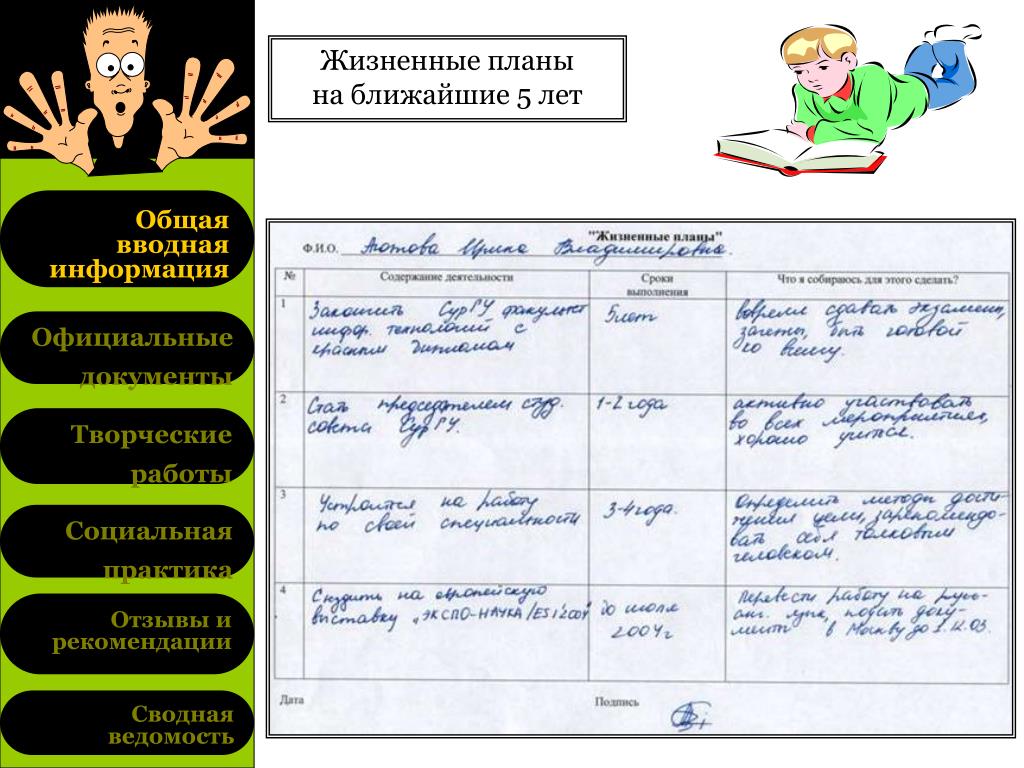 Жизненные планы
на ближайшие 5 лет
Общая
вводная
информация
Официальные
документы
Творческие
работы
Социальная
практика
Отзывы и
рекомендации
Сводная
ведомость
"Жизненные планы"
Ф.И.О. Ирина Владимировна.
№ Содержание деятельности Сроки выполнения Что я собираюсь для этого сделать?
1
Закончить СурГУ факультет
инфор. технологий с
красным дипломом
5 лет
вовремя сдавать экзамены,
зачеты, быть готовой
ко всему.
2
Стать председателем студ.
совета СурГУ.
1-2 года
активно участвовать
во всех мероприятиях,
хорошо учится.
3
Устроится на работу
по своей специальности
3-4 года.
Определить методы дости-
жения цели, зарекомендо-
вать себя толковым
человеком.
4
Съездить на европейскую
выставку „ЭКСПО-НАУКА/ESI'2004
до июля
2004г
Перевести работу на
англ. язык, подать доку-
менты в Москву до 1.12.03.
Дата Подпись